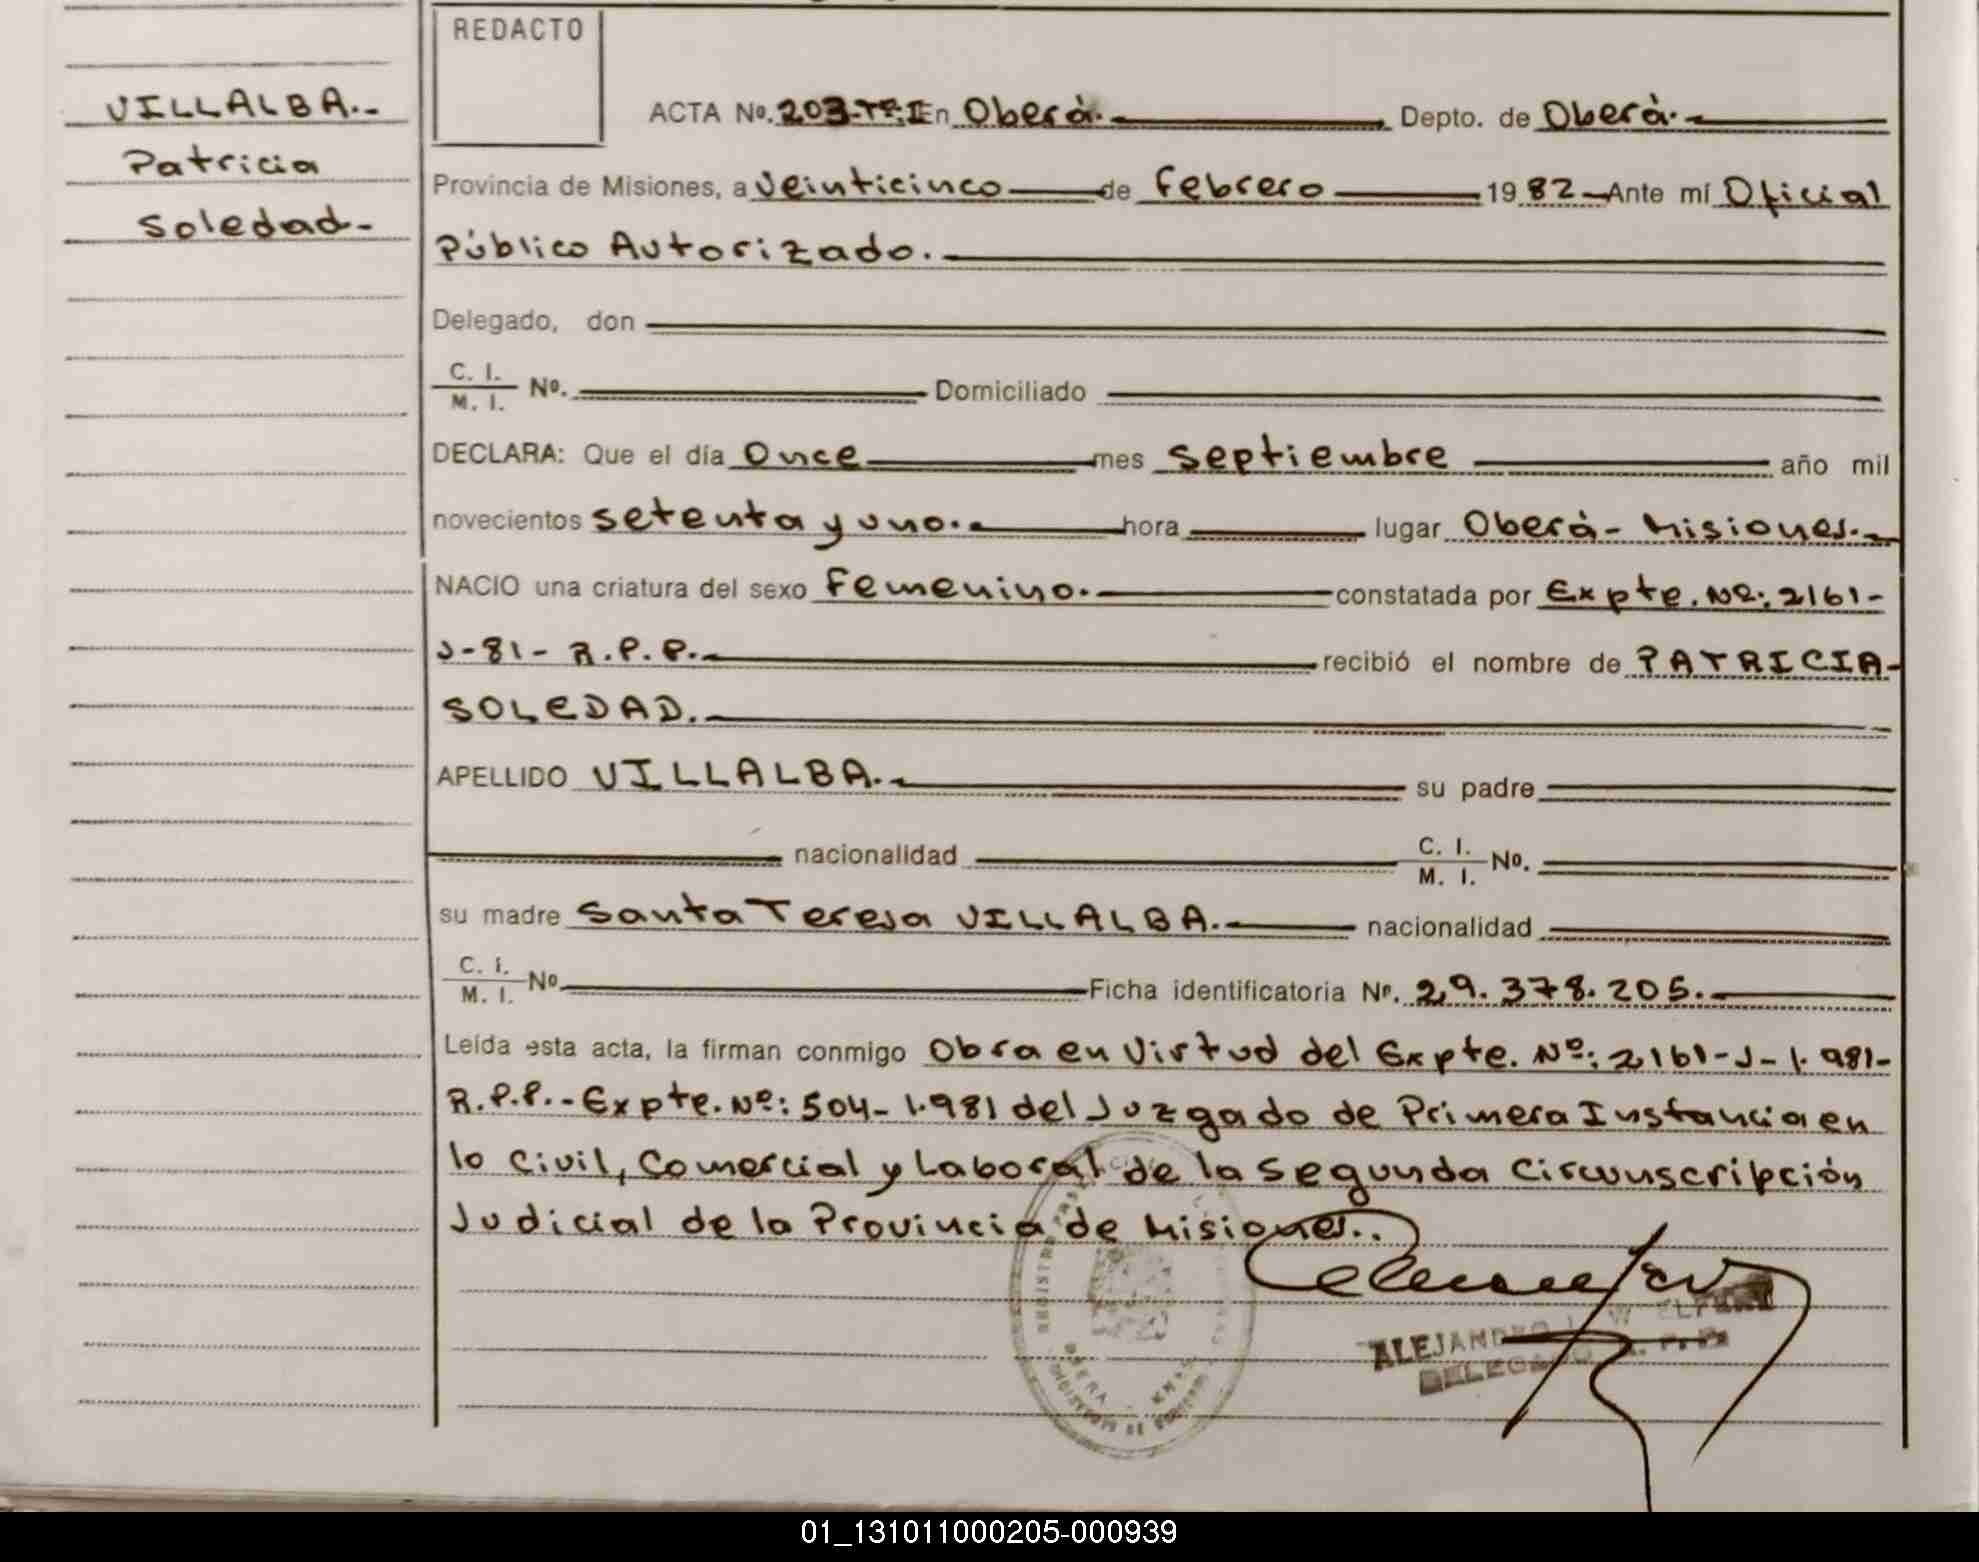 REDACTO
VILLALBA.-
Patricia
Soledad-
ACTA No. 203-Tº.I En Oberá. Depto. de Oberá.
Provincia de Misiones, a Veinticinco de Febrero 1982 Ante mí Oficial
Público Autorizado.
Delegado, don
C. I.
M. I. No. Domiciliado
DECLARA: Que el día Once mes septiembre año mil
novecientos setenta y uno. hora lugar Oberá- Misiones.
NACIO una criatura del sexo Femenino. constatada por Expte. Nº: 2161-
J-81- R.P.P. recibió el nombre de PATRICIA-
SOLEDAD.
APELLIDO VILLALBA. su padre
nacionalidad C. I.
M. I. No.
su madre Santa Teresa VILLALBA. nacionalidad
C. I.
M. I. No Ficha identificatoria No. 29.378.205.
Leída esta acta, la firman conmigo Obra en Virtud del Expte. Nº: 2161-J-1.981-
R.P.P.- Expte. Nº: 504-1.981 del Juzgado de Primera Instancia en
lo Civil, Comercial y Laboral de la Segunda Circunscripción
Judicial de la Provincia de Misiones..
ALEJANDRO
DELEGADO R. P. P.
01_131011000205-000939